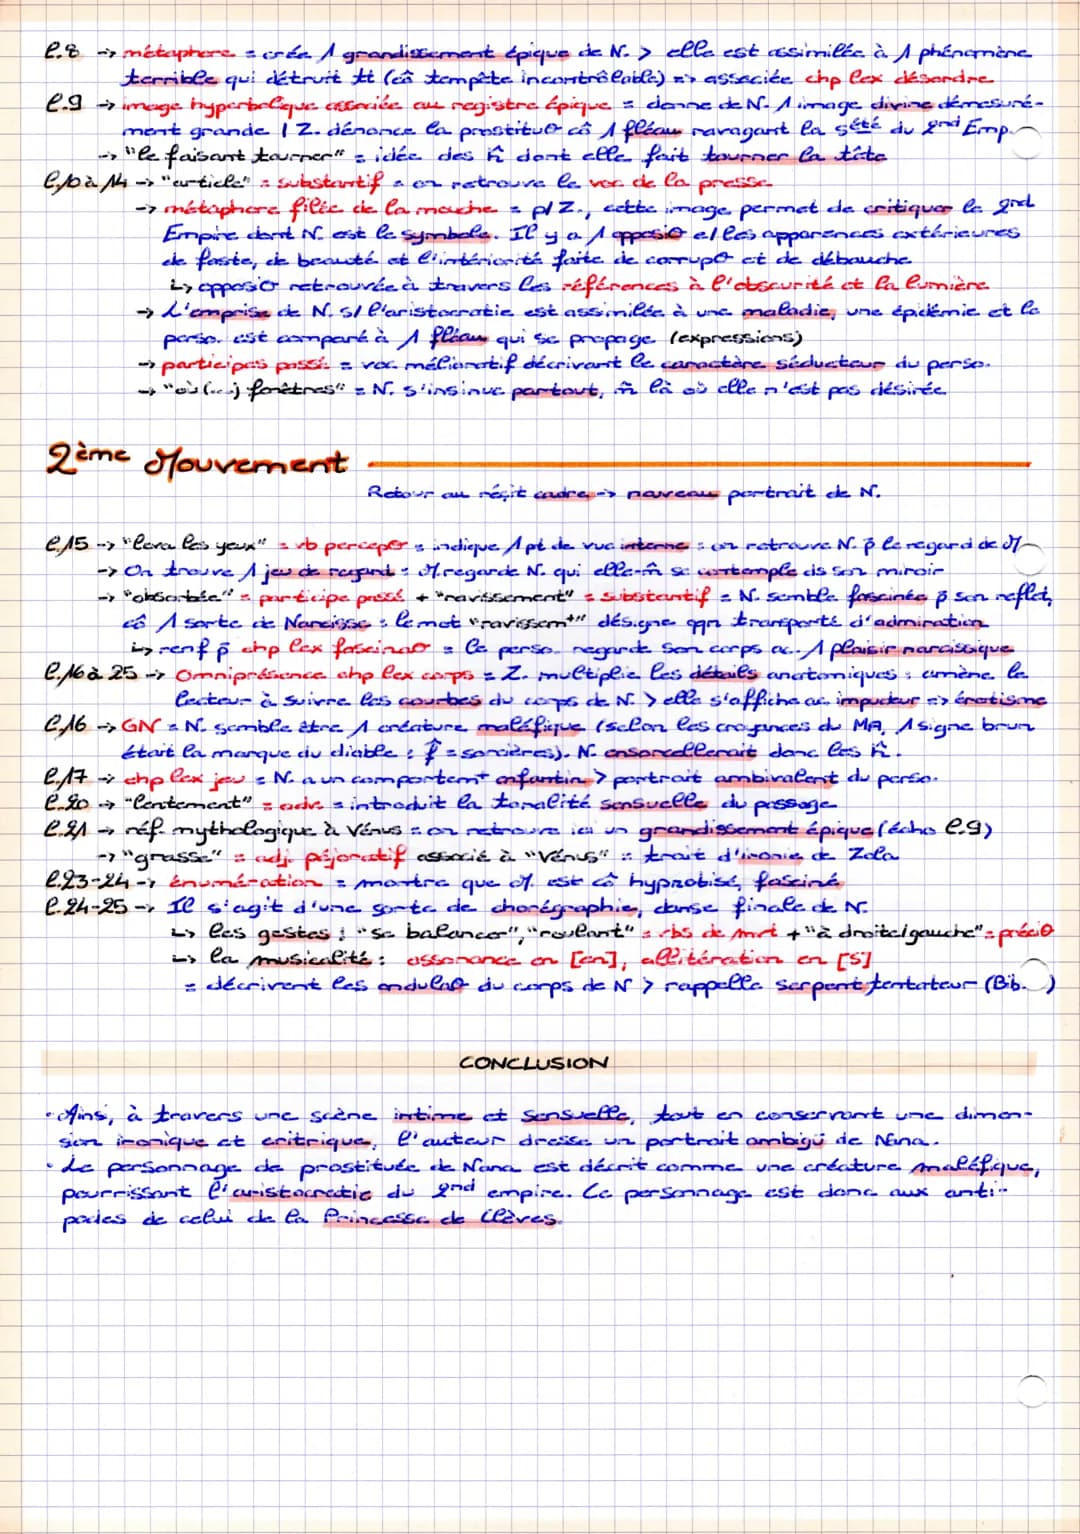 l.8 -> métaphore = crée 1 grandissement épique de N. > elle est assimilée à 1 phénomène
terrible qui détruit tt (cô tempête incontrôlable) => associée chp lex désordre
l.9 -> image hyperbolique associée au registre épique = donne de N. 1 image divine démesuré-
ment grande / Z. dénonce la prostituo cô 1 fléau ravageant la sété du 2nd Emp.
-> "le faisant tourner" = idée des h̄ dont elle fait tourner la tête
l.10 à 14 -> "article" = substantif = on retrouve le voc de la presse
-> métaphore filée de la mouche = p/ Z., cette image permet de critiquer le 2nd
Empire dont N. est le symbole. Il y a 1 opposio e/ les apparences extérieures
de faste, de beauté et l'intériorité faite de corrupo et de débauche
↳ opposio retrouvée à travers les références à l'obscurité et la lumière
-> L'emprise de N. s/ l'aristocratie est assimilée à une maladie, une épidémie et le
perso. est comparé à 1 fléau qui se propage (expressions)
-> participes passé = voc mélioratif décrivant le caractère séducteur du perso.
-> "où (...) fenêtres" = N. s'insinue partout, m̂ là où elle n'est pas désirée
2ème Mouvement
Retour au récit cadre -> nouveau portrait de N.
l.15 -> "leva les yeux" = vb percepo = indique 1 pt de vue interne : on retrouve N. p̄ le regard de M
-> On trouve 1 jeu de regard : M. regarde N. qui elle-m̂ se contemple ds son miroir
-> "absorbée" = participe passé + "ravissement" = substantif = N. semble fascinée p̄ son reflet,
cô 1 sorte de Narcisse : le mot "ravissemt" désigne qqn transporté d'admiration
↳ renf p̄ chp lex fascinao = le perso. regarde son corps ac. 1 plaisir narcissique
l.16 à 25 -> Omniprésence chp lex corps = Z. multiplie les détails anatomiques : amène le
lecteur à suivre les courbes du corps de N. > elle s'affiche ac impudeur => érotisme
l.16 -> GN = N. semble être 1 créature maléfique (selon les croyances du MA, 1 signe brun
était la marque du diable : f̂ = sorcières). N. ensorcellerait donc les h̄.
l.17 -> chp lex jeu = N. a un comportemt enfantin > portrait ambivalent du perso.
l.20 -> "lentement" = adv = introduit la tonalité sensuelle du passage
l.21 -> réf. mythologique à Vénus = on retrouve ici un grandissement épique (écho l.9)
-> "grasse" = adj. péjoratif associé à "Vénus" = trait d'ironie de Zola
l.23-24 -> énumération = montre que M. est cô hypnotisé, fasciné
l.24-25 -> Il s'agit d'une sorte de chorégraphie, danse finale de N.
↳ les gestes : "se balancer", "roulant" = vbs de mvt + "à droite/gauche" = précio
↳ la musicalité : assonance en [en], allitération en [s]
= décrivent les ondulao du corps de N > rappelle serpent tentateur (Bib. )
CONCLUSION
• Ains, à travers une scène intime et sensuelle, tout en conservant une dimen-
sion ironique et critrique, l'auteur dresse un portrait ambigü de Nana.
• Le personnage de prostituée de Nana est décrit comme une créature maléfique,
pourrissant l'aristocratie du 2nd empire. Ce personnage est donc aux anti-
podes de celui de la Princesse de Clèves.